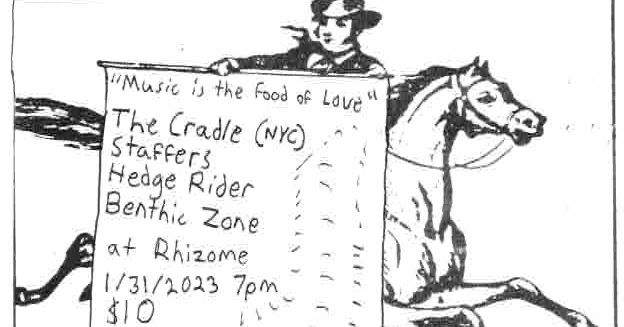 "Music is the Food of Love"
The Cradle (NYC)
Staffers
Hedge Rider
Benthic Zone
at Rhizome
1/31/2023 7pm
$10